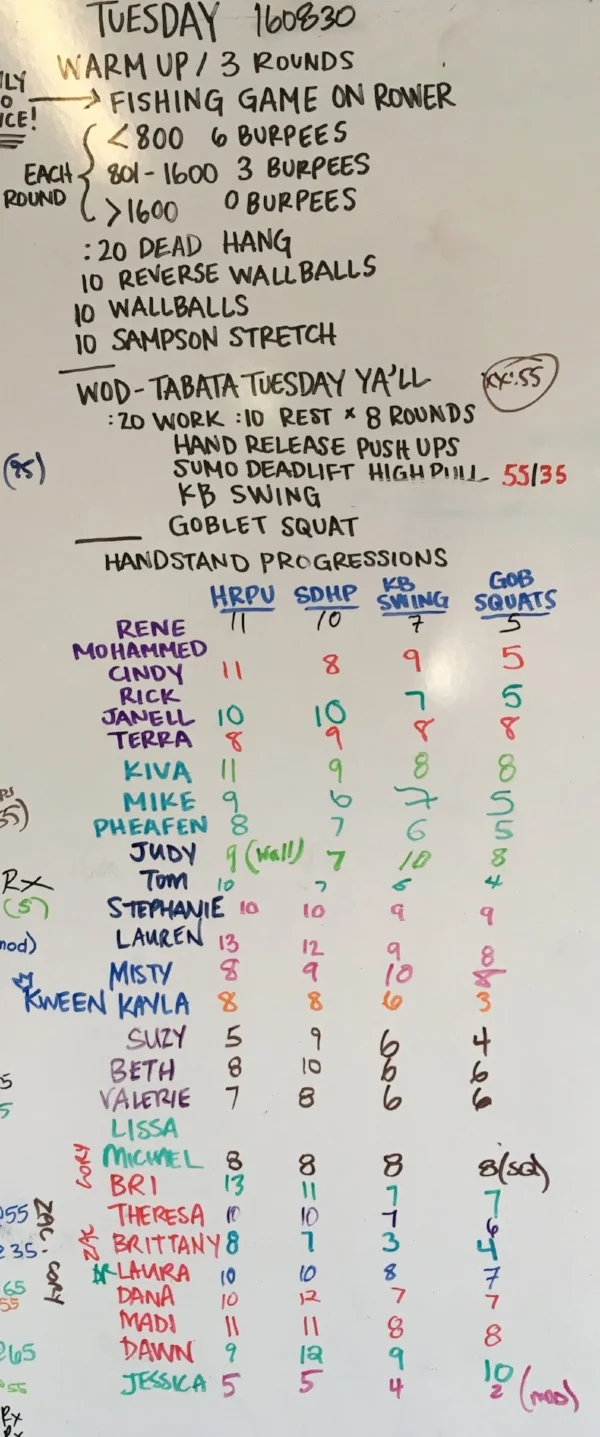 TUESDAY 160830
WARM UP / 3 ROUNDS
→ FISHING GAME ON ROWER
EACH ROUND
<800 6 BURPEES
801-1600 3 BURPEES
>1600 0 BURPEES
:20 DEAD HANG
10 REVERSE WALLBALLS
10 WALLBALLS
10 SAMPSON STRETCH
WOD - TABATA TUESDAY YA'LL
:20 WORK :10 REST × 8 ROUNDS
HAND RELEASE PUSH UPS
(95)
SUMO DEADLIFT HIGH PULL 55/35
KB SWING
GOBLET SQUAT
HANDSTAND PROGRESSIONS
HRPU SDHP KB SWING GOB SQUATS
RENE 11 10 7 5
MOHAMMED
CINDY 11 8 9 5
RICK 7 5
JANELL 10 10
TERRA 8 9 8 8
KIVA 11 9 8 8
MIKE 9 6 7 5
PHEAFEN 8 7 6 5
JUDY 9 (wall) 7 10 8
RX
TOM 10 7 6 4
(S)
STEPHANIE 10 10 9 9
LAUREN 13 12 9 8
MISTY 8 9 10 8
KWEEN KAYLA 8 8 6 3
SUZY 5 9 6 4
BETH 8 10 6 6
VALERIE 7 8 6 6
LISSA
CORY
MICHAEL 8 8 8 8 (SQ)
BRI 13 11 7 7
ZAC - CORY
THERESA 10 10 7 6
ZAC
BRITTANY 8 7 3 4
LAURA 10 10 8 7
DANA 10 12 7 7
MADI 11 11 8 8
DAWN 9 12 9 10
JESSICA 5 5 4 2 (mod)
Rx